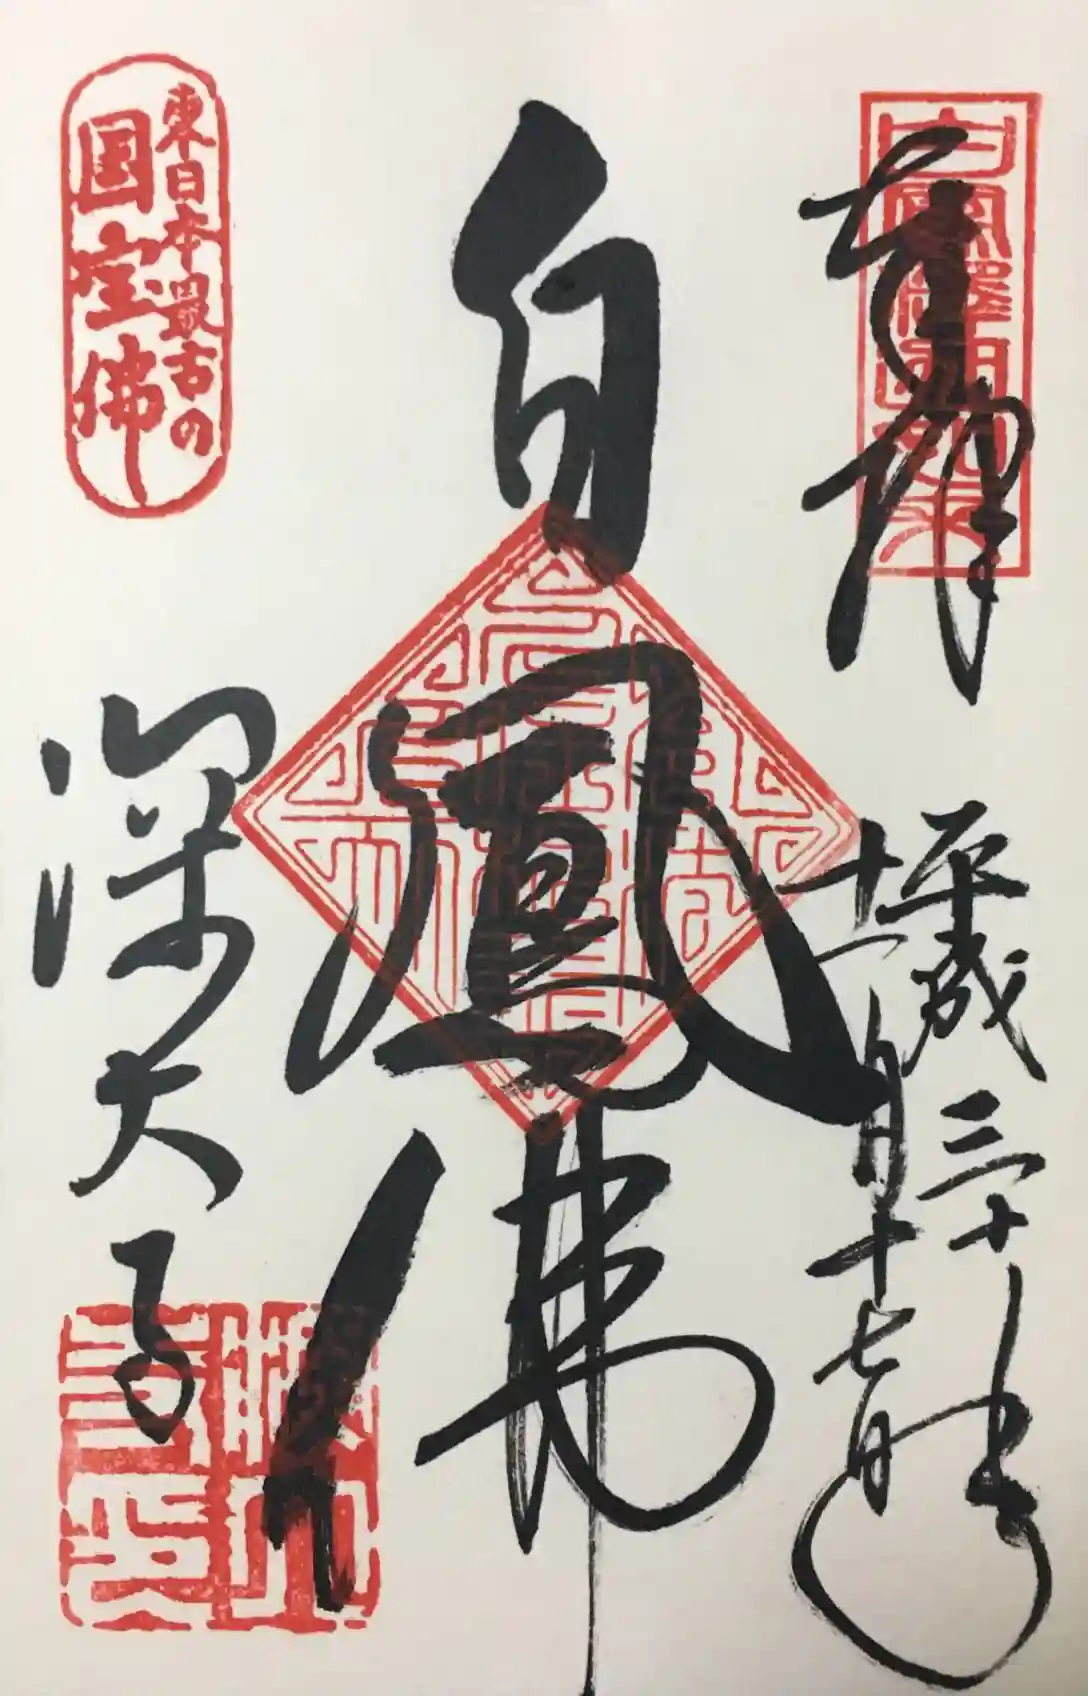 奉拝
平成三十年
十一月十七日
白鳳佛
東日本最古の
国宝佛
深大寺